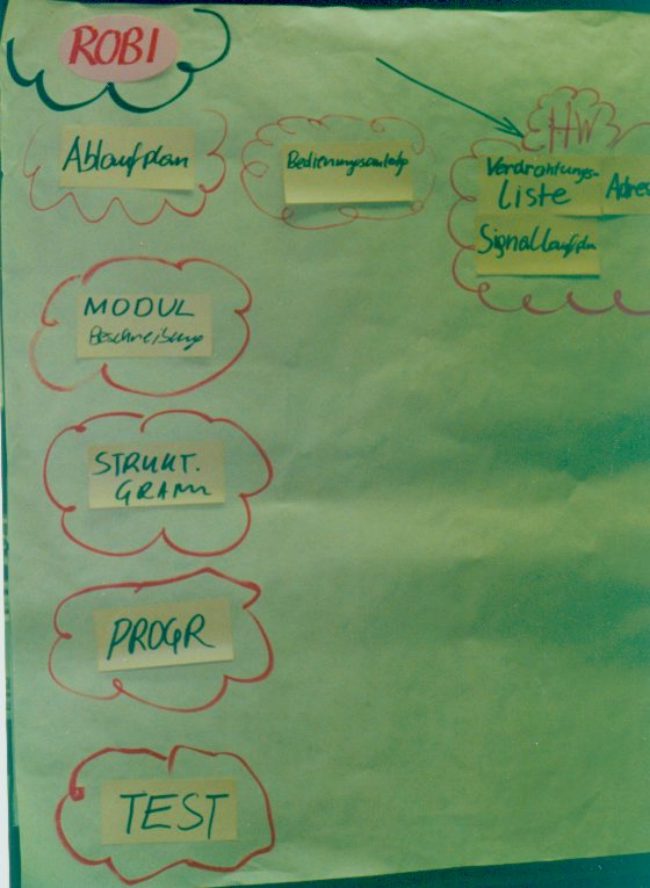 ROBI
Ablaufplan
Bedienungsanleitg
EHW
Verdrahtungs-
Liste
Adres
Signallaufpln
MODUL
Beschreibung
STRUKT.
GRAMM
PROGR
TEST